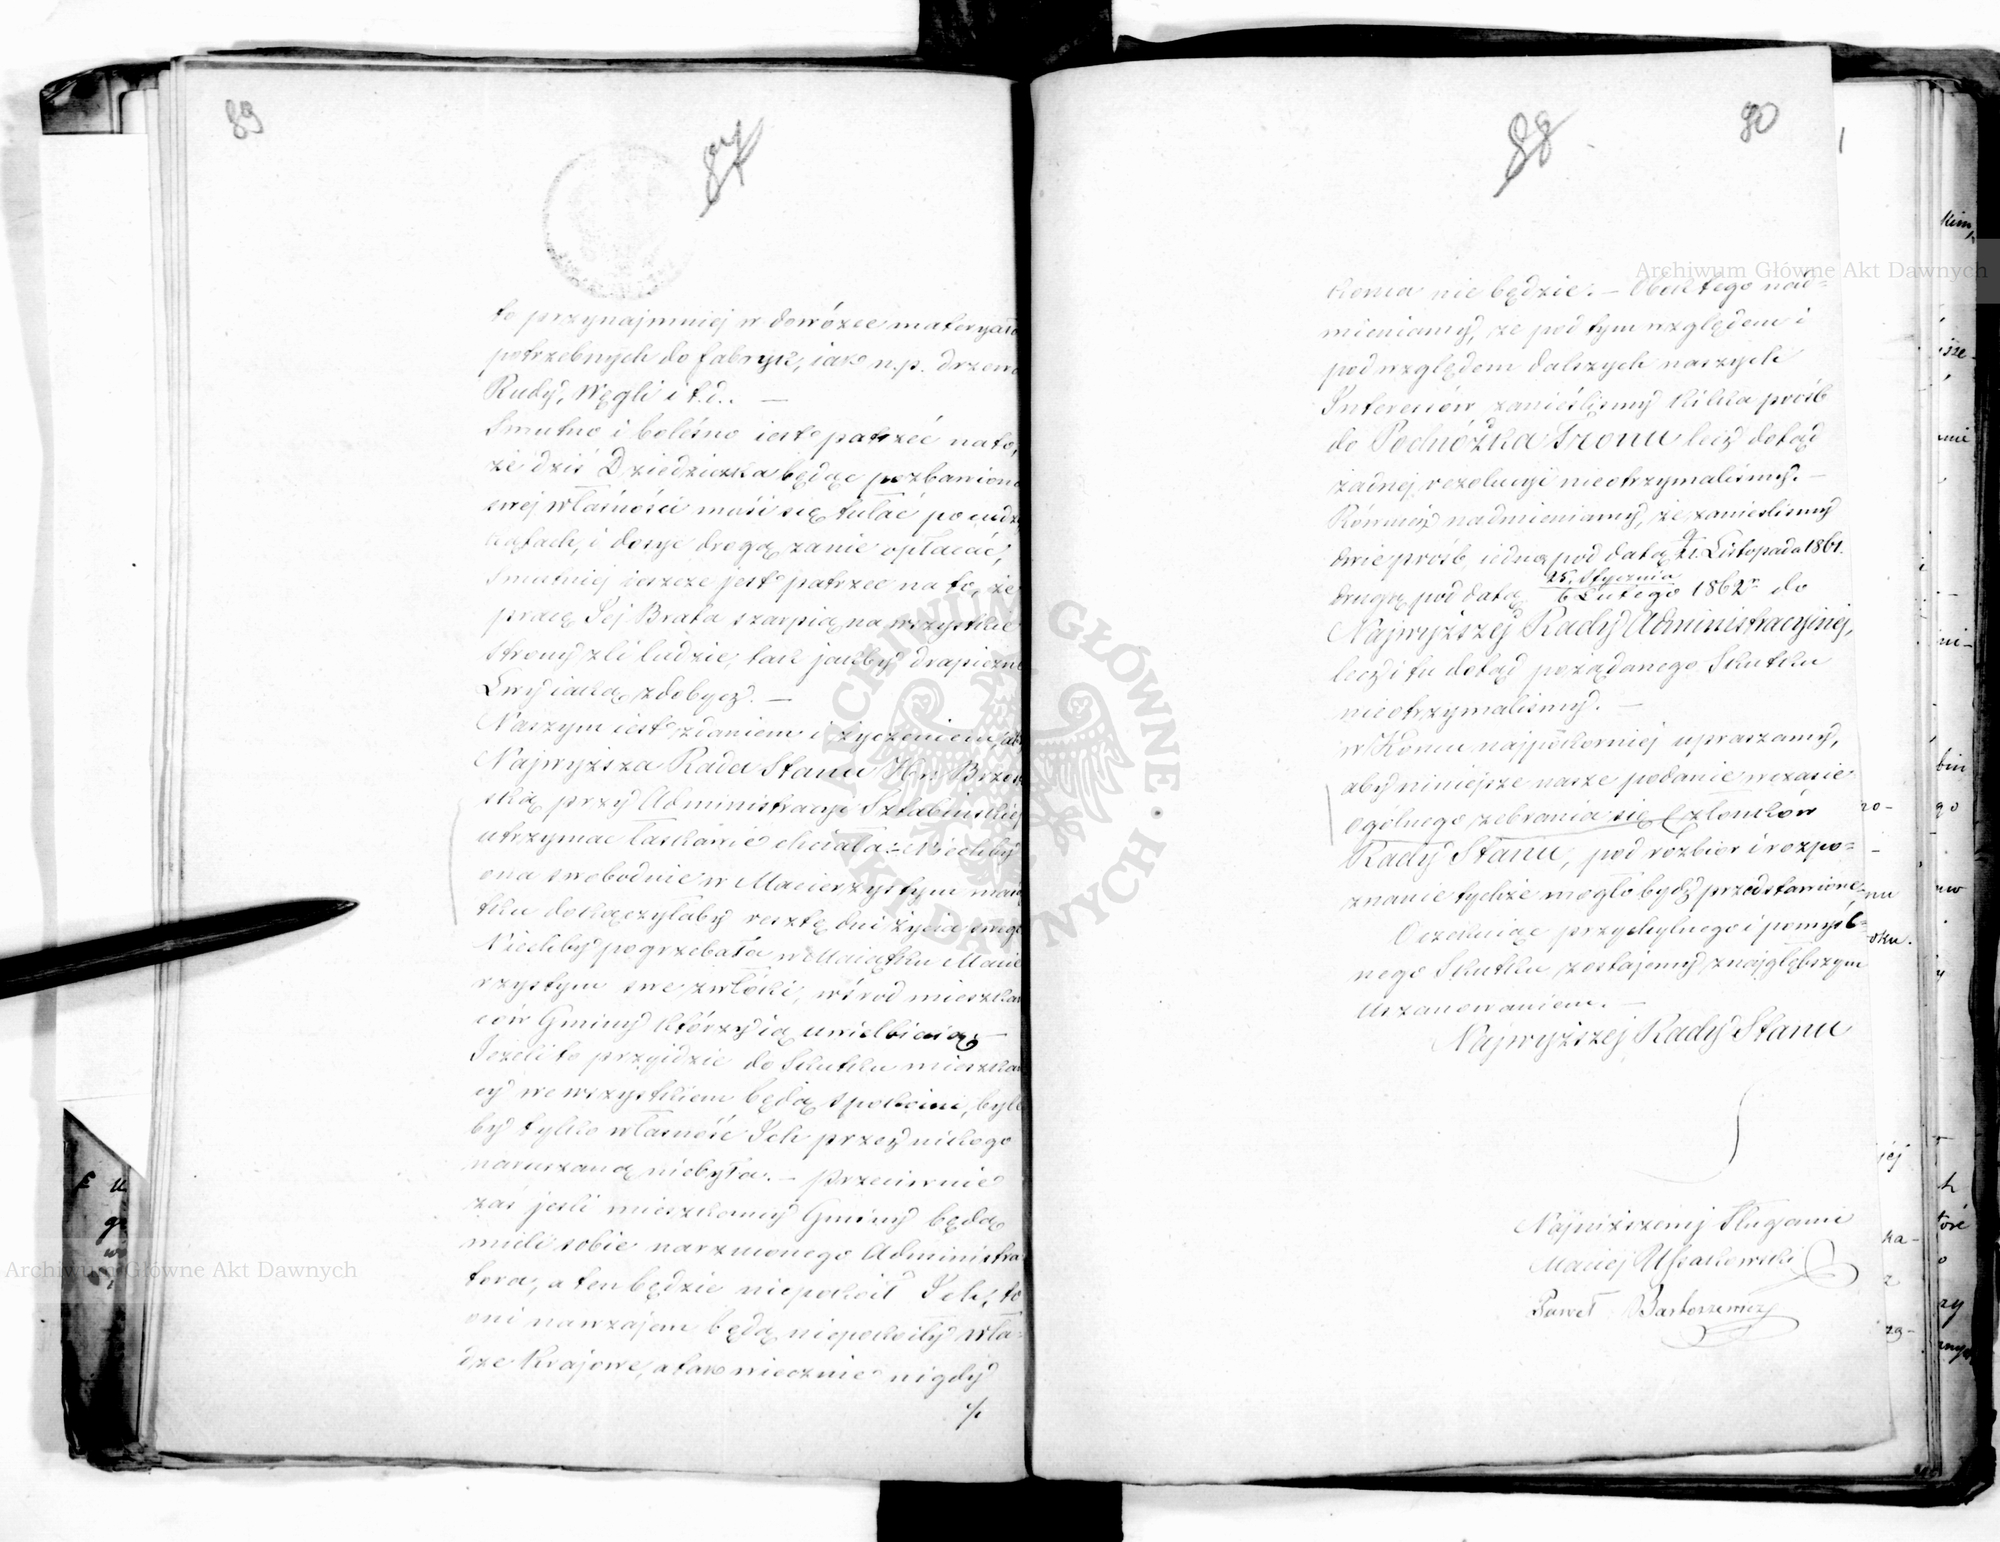 89
87
to przynajmniej w dowózce materyałó
potrzebnych do fabryk, iak n.p. drzewa
Rudy, Węgli i t.d. —
Smutno i boleśno iest patrzeć na to,
że dziś Dziedziczka będąc pozbawioną
swej własności musi się tułać po cudzy
kątach, i dosyć drogą zanie opłacać,
Smutniej ieszcze jest patrzeć na to, że
pracę Jej Brata szarpią na wszystkie
strony zli ludzie, tak jakby drapieżne
Lwy iaką zdobycz. —
Naszym iest zdaniem i życzeniem, ab
Najwyższa Rada Stanu Hr. Brzos
ską przy Administracyi Sztabińskiej
utrzymać łaskawie chciała: — Niechby
ona swobodnie w Macierzystym mają
tku dokączyłaby resztę dni życia swego
Niechby pogrzebała w Maiątku Macie
rzystym swe zwłoki, wśrod mieszkań
ców Gminy którzy ią uwielbiaią. —
Jeżeli to przyidzie do Skutku mieszkań
cy we wszystkiem będą spokoini, byle
by tylko własność Ich przez nikogo
naruszaną niebyła. — Przeciwnie
zaś jeśli mieszkancy Gminy będą
mieli sobie narzuconego Administra
tora, a ten będzie niepokoił Ich, to
oni nawzajem będą niepokoily wła-
dze Krajowe, a tak wiecznie nigdy
·/·
88
90
końca nie będzie. — Obok tego nad-
mieniamy, że pod tym względem i
pod względem dalszych naszych
Interesów zanieśliśmy kilka próśb
do Podnóżka Tronu lecz dotąd
żadnej rezolucyi nieotrzymaliśmy. —
Również nadmieniamy, że zanieslismy
dwie prośb, iedną pod datą 21. Listopada 1861.
drugą pod datą 25. Stycznia
6 Lutego 1862 r. do
Najwyższej Rady Administracyjnej,
lecz i tu dotąd pożądanego Skutku
nieotrzymalismy. —
w Końcu najpokorniej upraszamy,
aby niniejsze nasze podanie w czasie
ogólnego zebrania się Członków
Rady Stanu, pod rozbior i rozpo-
znanie tychże mogło bydź przedstawione,
Oczekuiąc przychylnego i pomyśl-
nego Skutku zostajemy z najgłębszym
uszanowaniem. —
Najwyższej Rady Stanu
Najniższemy Sługami
Maciej
Paweł Bartoszewicz
Archiwum Główne Akt Dawnych
Archiwum Główne Akt Dawnych
ARCHIWUM GŁÓWNE · AKT DAWNYCH ·